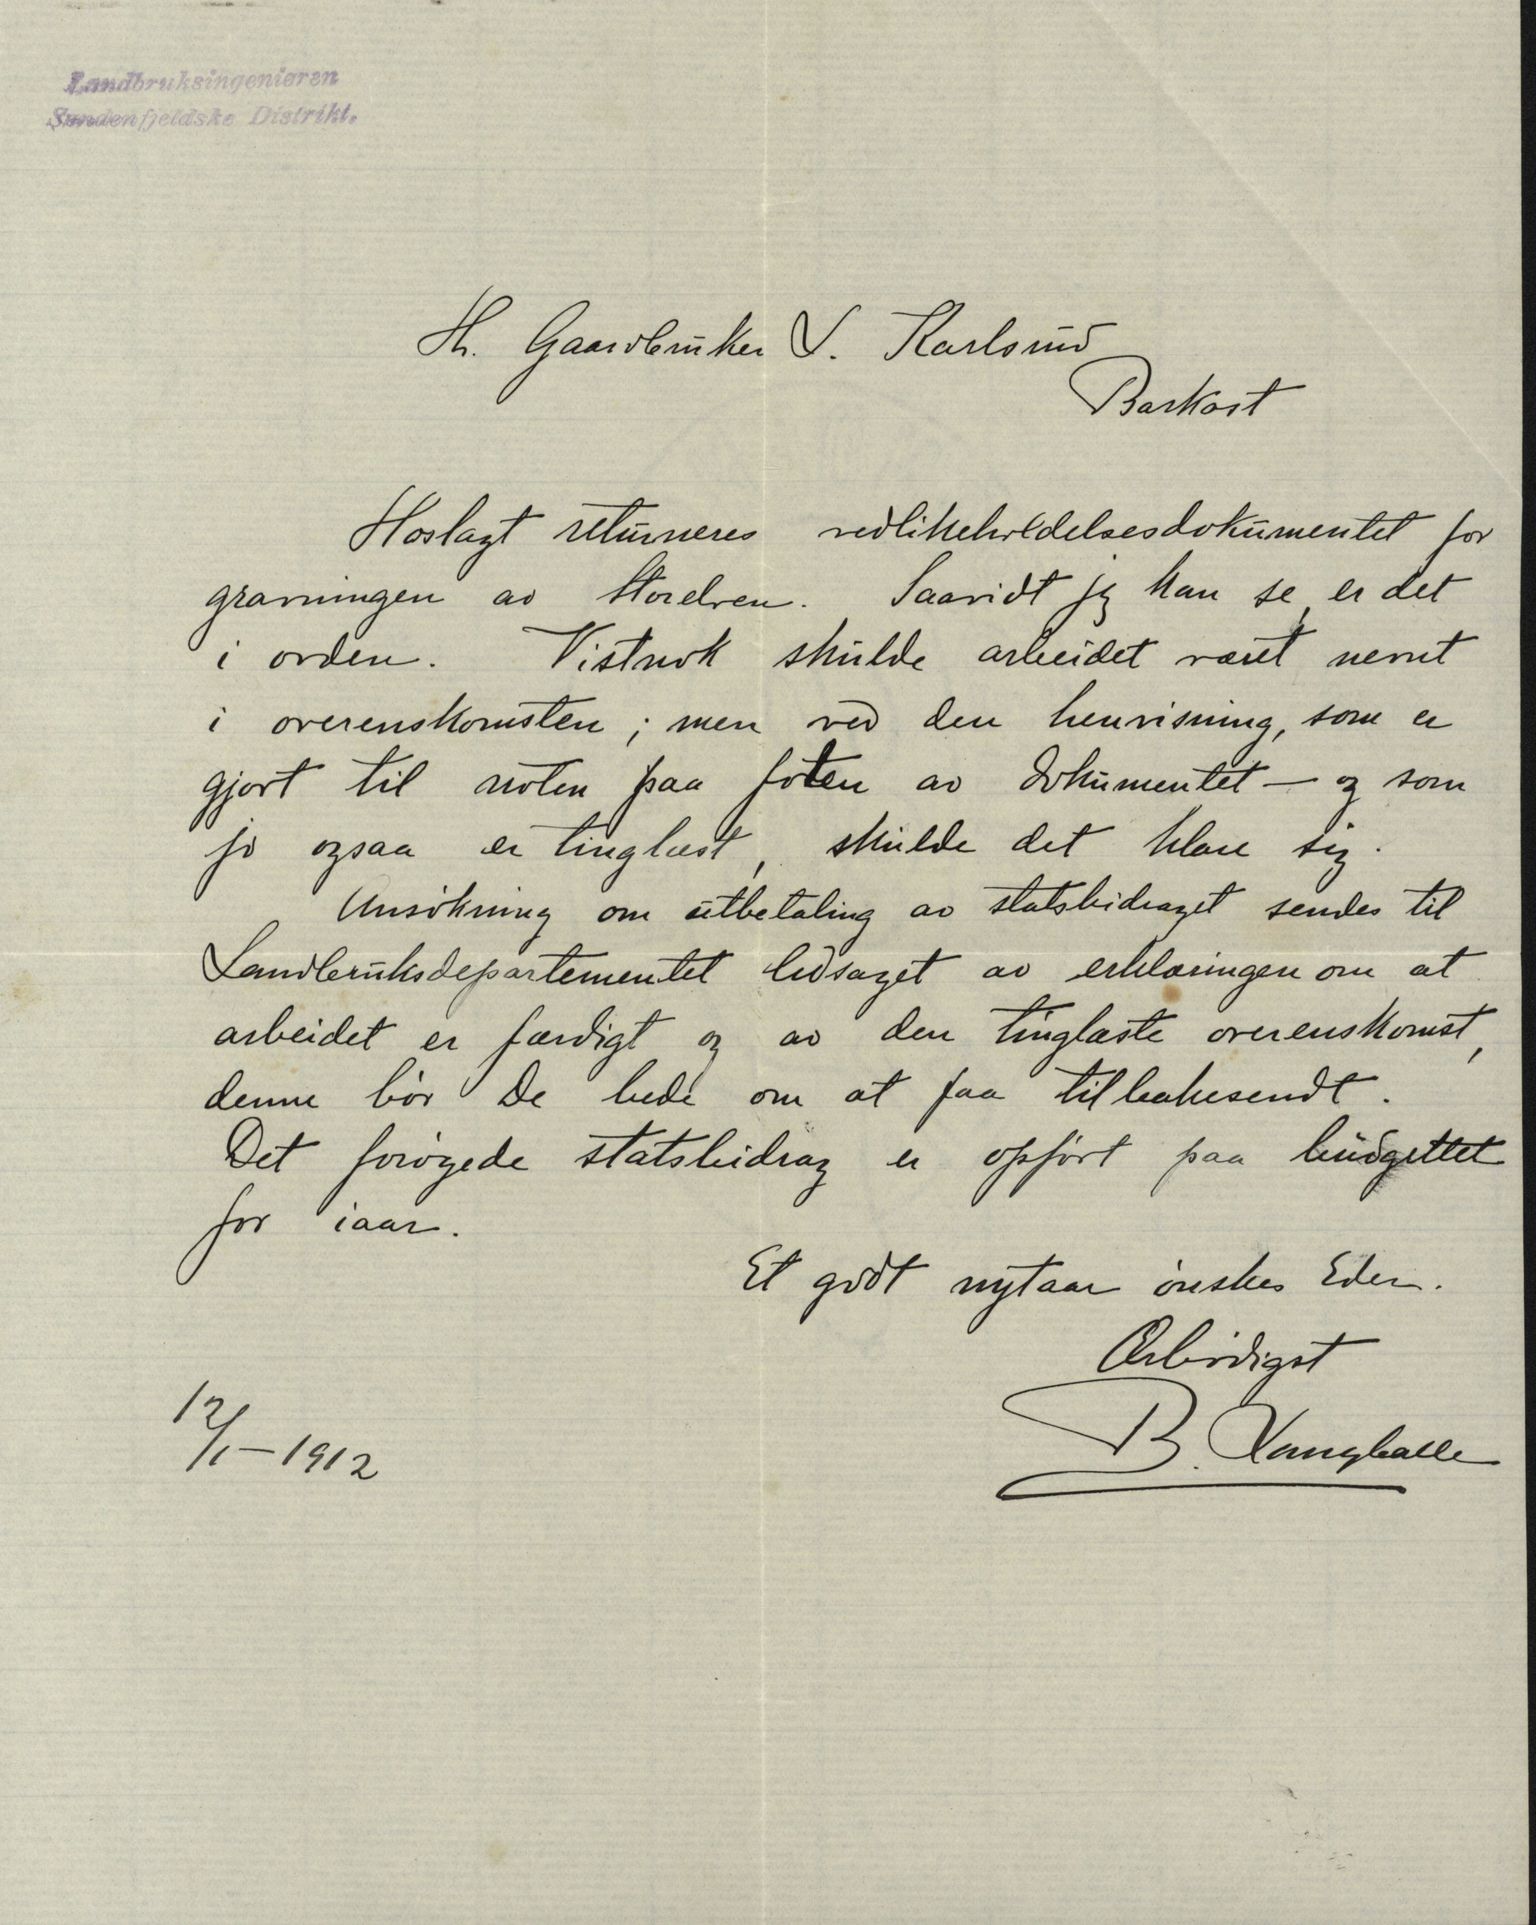 Landbruksingeniøren
Søndenfjeldske Distrikt.
Hr. Gaardbruker L. Karlsrud
Barkost
Hoslagt returneres vedlikeholdelsesdokumentet for
gravningen av Storelven. Saavidt jeg kan se, er det
i orden. Vistnok skulde arbeidet været nevnt
i overenskomsten; men ved den henvisning, som er
gjort til noten paa foten av dokumentet — og som
jo ogsaa er tinglæst, skulde det klare sig.
Ansökning om utbetaling av statsbidraget sendes til
Landbruksdepartementet ledsaget av erklæringen om at
arbeidet er færdigt og av den tinglæste overenskomst,
denne bör De bede om at faa tilbakesendt.
Det forögede statsbidrag er opfört paa budgettet
for iaar.
Et godt nytaar önskes Eder.
Ærbödigst
B. Langballe
12/1 – 1912